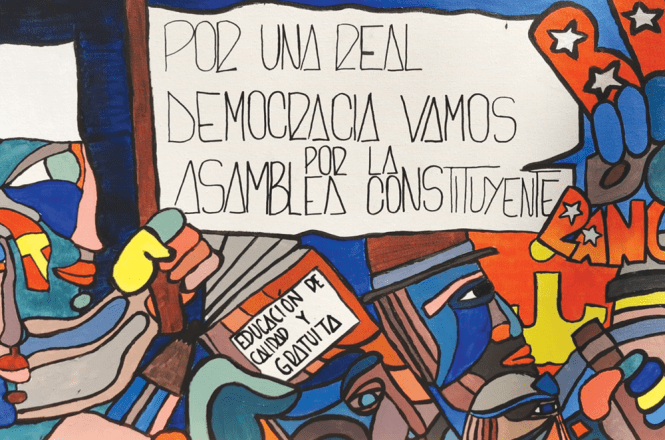 POR UNA REAL
DEMOCRACIA VAMOS
POR LA
ASAMBLEA CONSTITUYENTE
EDUCACIÓN DE
CALIDAD Y
GRATUITA